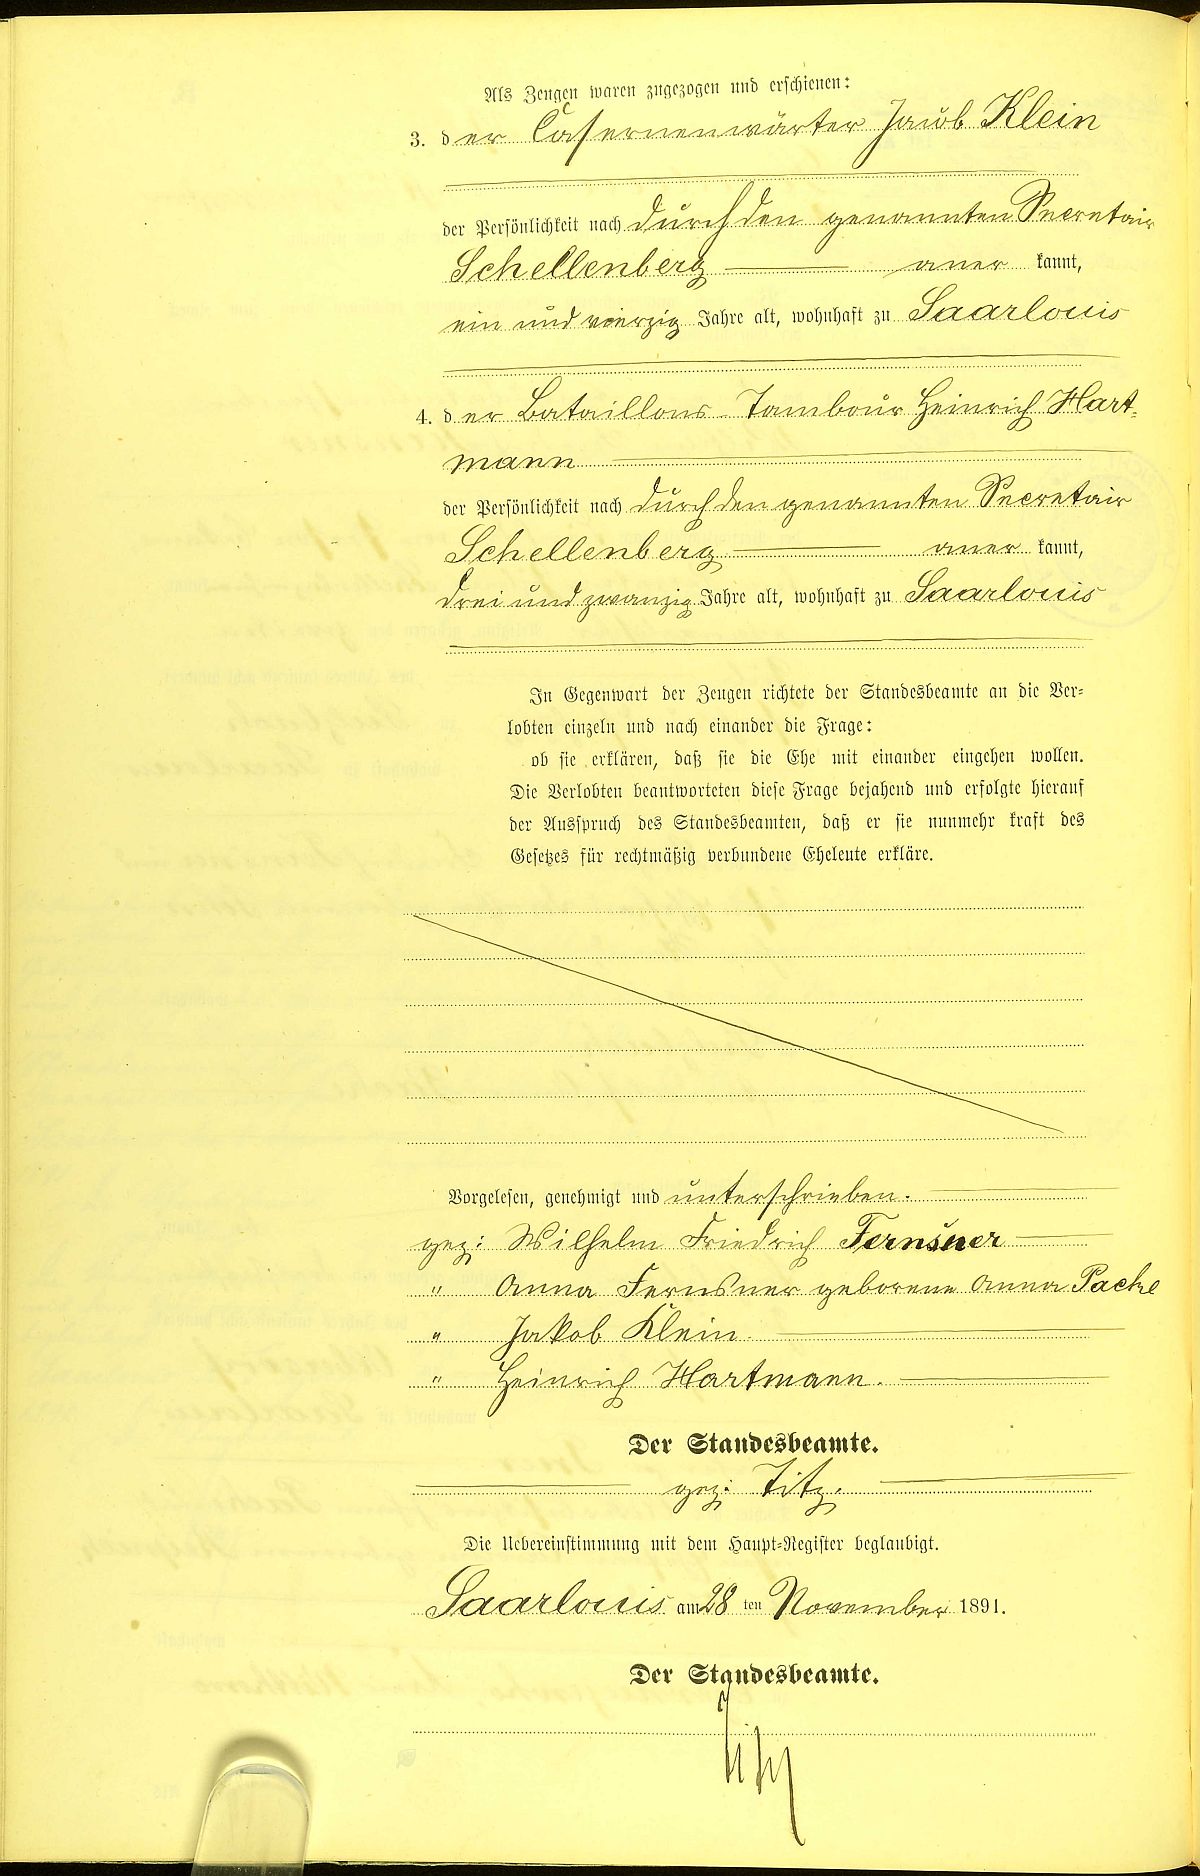 Als Zeugen waren zugezogen und erschienen:
3. der Casernenwärter Jacob Klein
der Persönlichkeit nach durch den genannten Secretair
Schellenberg anerkannt,
ein und vierzig Jahre alt, wohnhaft zu Saarlouis
4. der Bataillons-Tambour Heinrich Hart-
mann
der Persönlichkeit nach durch den genannten Secretair
Schellenberg anerkannt,
drei und zwanzig Jahre alt, wohnhaft zu Saarlouis
In Gegenwart der Zeugen richtete der Standesbeamte an die Ver-
lobten einzeln und nach einander die Frage:
ob sie erklären, daß sie die Ehe mit einander eingehen wollen.
Die Verlobten beantworteten diese Frage bejahend und erfolgte hierauf
der Ausspruch des Standesbeamten, daß er sie nunmehr kraft des
Gesetzes für rechtmäßig verbundene Eheleute erkläre.
Vorgelesen, genehmigt und unterschrieben.
gez: Wilhelm Friedrich Fernsner
" Anna Fernsner geborene Anna Packe
" Jakob Klein.
" Heinrich Hartmann.
Der Standesbeamte.
gez: Titz.
Die Uebereinstimmung mit dem Haupt-Register beglaubigt.
Saarlouis am 28 ten November 1891.
Der Standesbeamte.
Titz